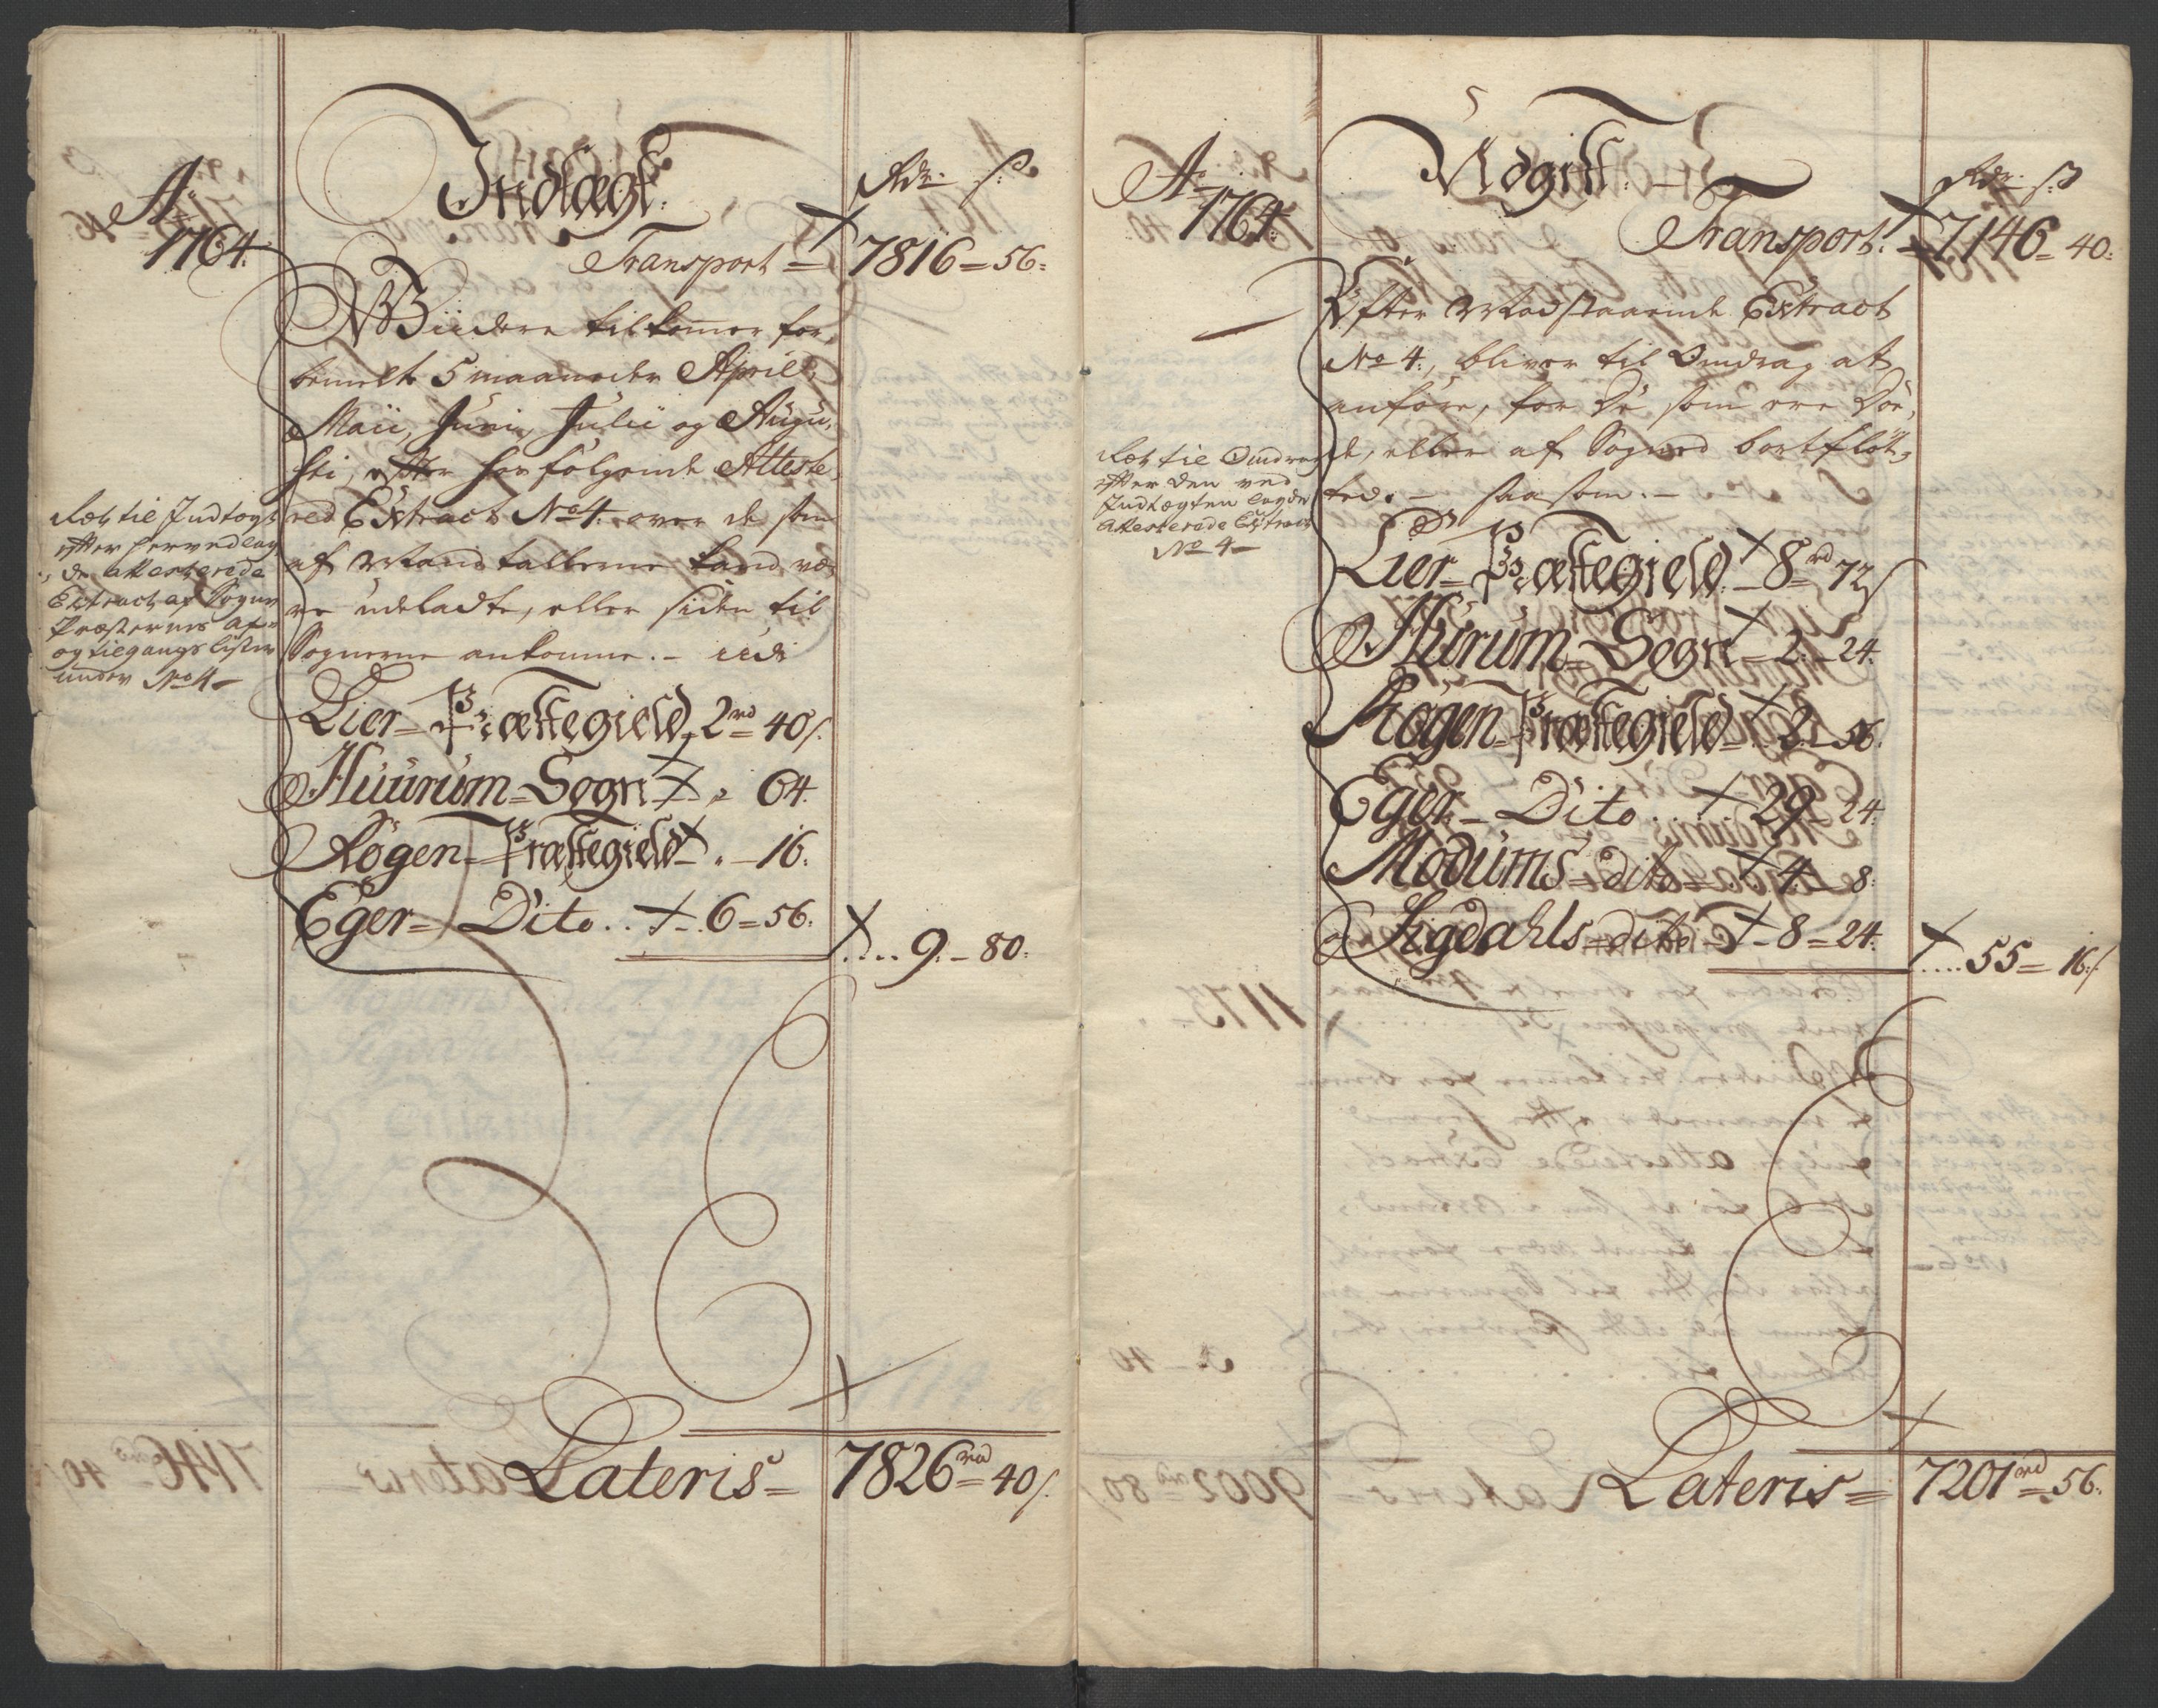 Indtægt.
Ao
1764.
Rdr. ß.
Transport = 7816 = 56:
Widere tilkommer for
bemelte 5 maaneder April,
Maii, Juni, Julii og Augu,
sti, efter her følgende Atteste,
red Extract No 4. over de som
af Mandtallerne kand væ,
re udeladte, eller siden til
Sognerne ankomne. -
Ret til Indtægt
efter hervedlag
, de attesterede
Extract af Sogne
Præsternes af
og tilgangs lister
under No 4 -
Lier = Præstegield, 2 rd 40 ß.
Huurum = Sogn - „ = 64.
Røgen = Præstegield - „ - 16.
Eger = Dito . . - . 6 = 56.
.... 9. - 80:
Lateris = 7826 rd = 40 ß.
Udgift.
Ao
1764.
Rdr. ß
Transport. = 7146 = 40:
Efter Modstaaende Extract
No 4., bliver til Omdrag at
anføre, for De som ere Dø,
de, eller af Sogned bortfløt,
ted. - saasom. -
Ret til Omdrag
efter den ved
Indtægten lagde
attesterede Extract
No 4 -
Lier - Præstegield. - 8 rd 72 ß
Hurum = Sogn = 2. - 24.
Røgen = Præstegield = . 2. - 56.
Eger. - Dito . . 29 - 24.
Modums = dito = . 4. - 8.
og Sigdahls = dito - 8 = 24.
.... 55 = 16 ß.
Lateris = 7201 rd = 56.